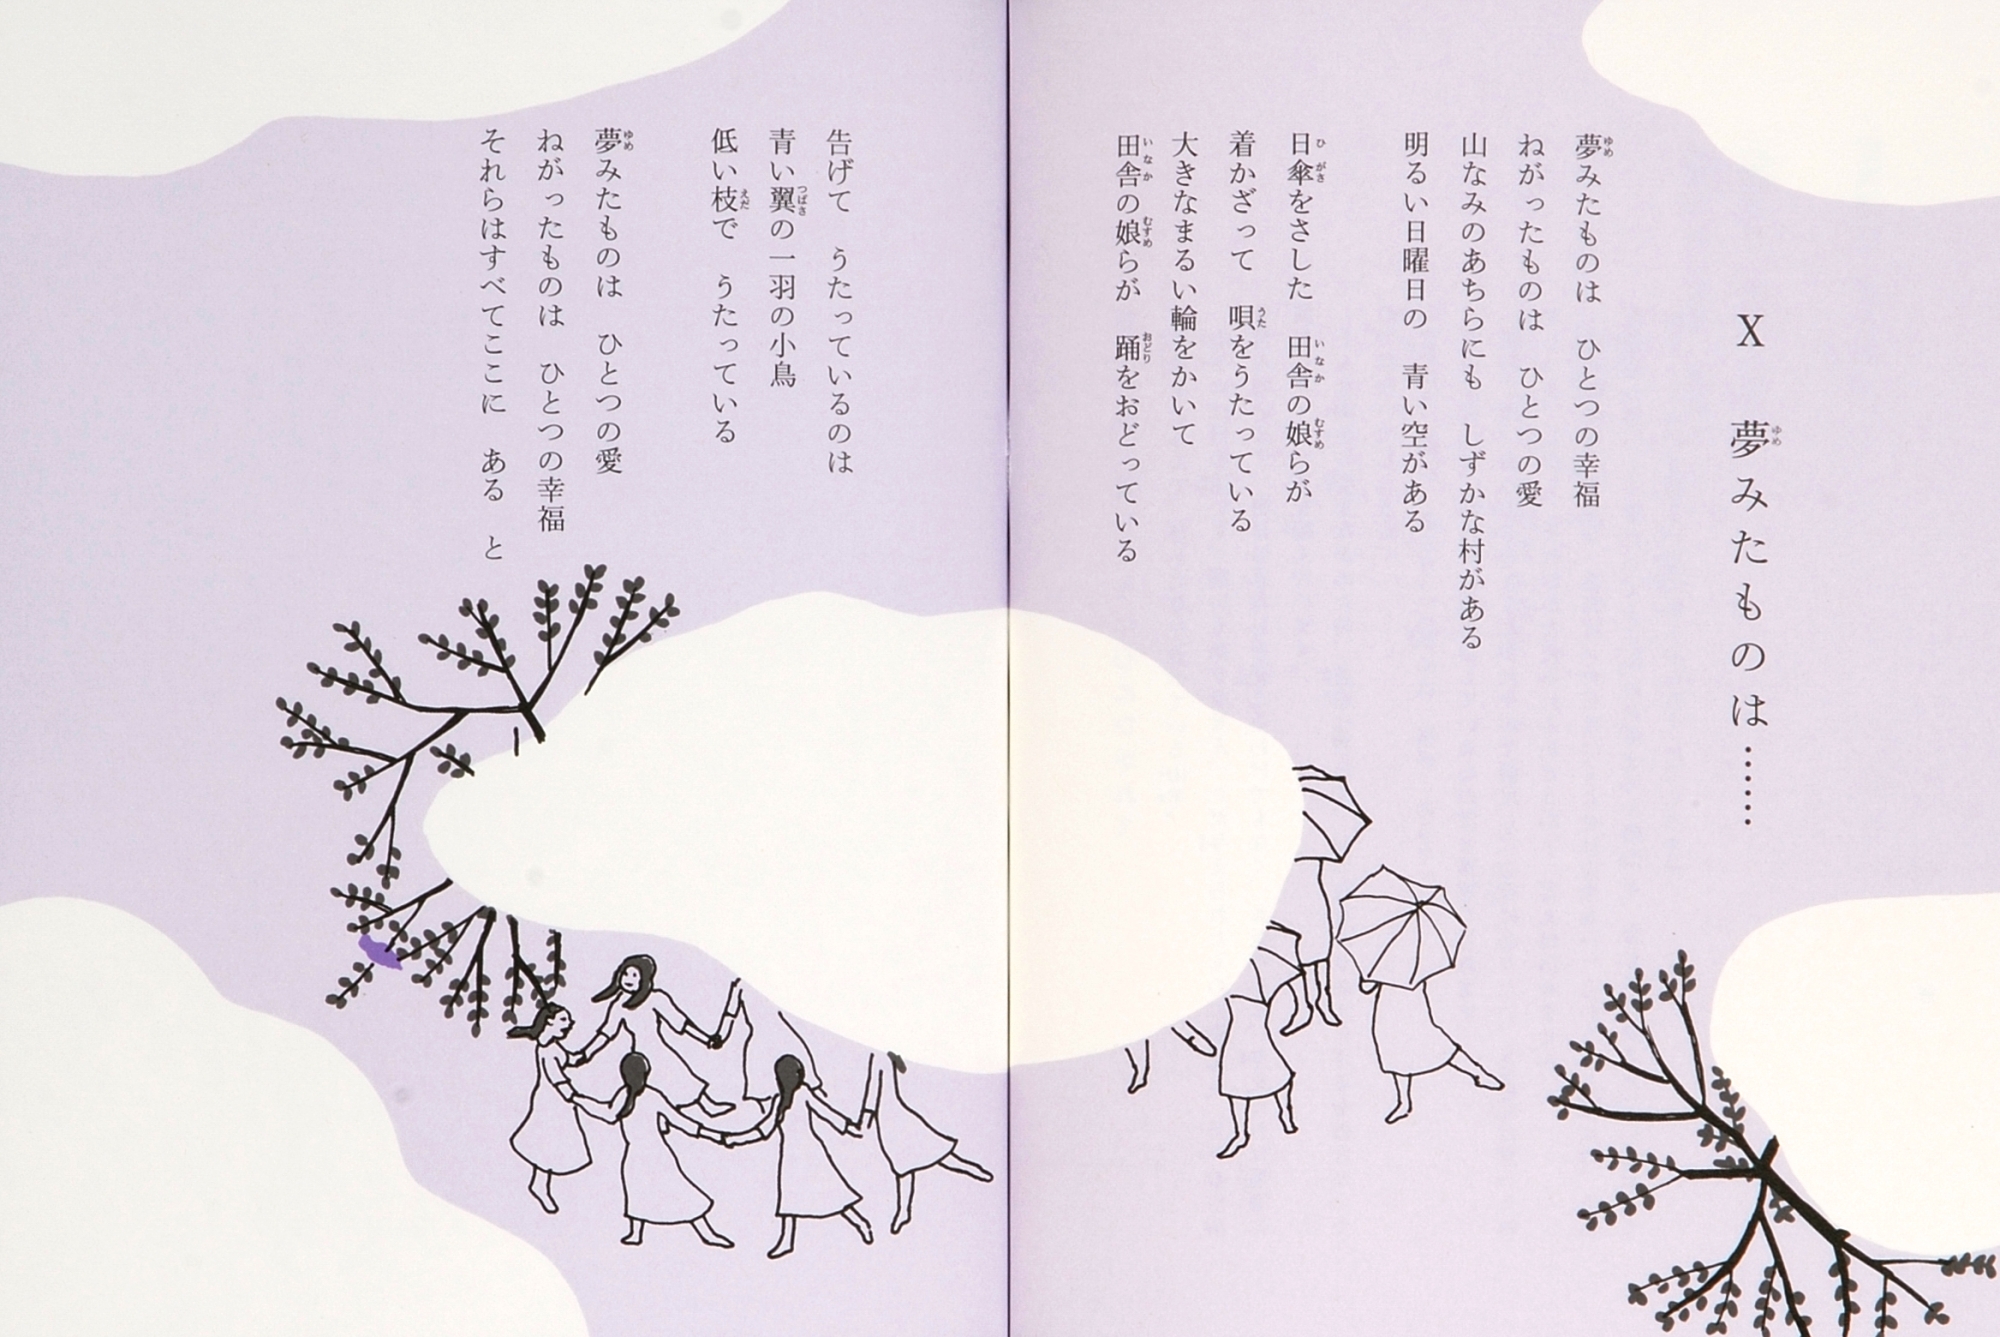 X　夢みたものは……
夢みたものは　ひとつの幸福
ねがったものは　ひとつの愛
山なみのあちらにも　しずかな村がある
明るい日曜日の　青い空がある
日傘をさした　田舎の娘らが
着かざって　唄をうたっている
大きなまるい輪をかいて
田舎の娘らが　踊をおどっている
告げて　うたっているのは
青い翼の一羽の小鳥
低い枝で　うたっている
夢みたものは　ひとつの愛
ねがったものは　ひとつの幸福
それらはすべてここに　ある　と